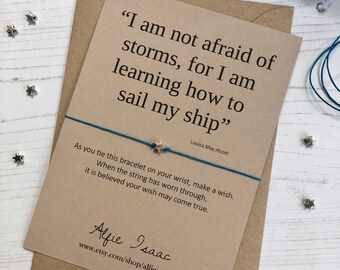 “I am not afraid of
storms, for I am
learning how to
sail my ship”
Louisa May Alcott
As you tie this bracelet on your wrist, make a wish.
When the string has worn through,
it is believed your wish may come true.
Alfie Isaac
www.etsy.com/shop/alfini